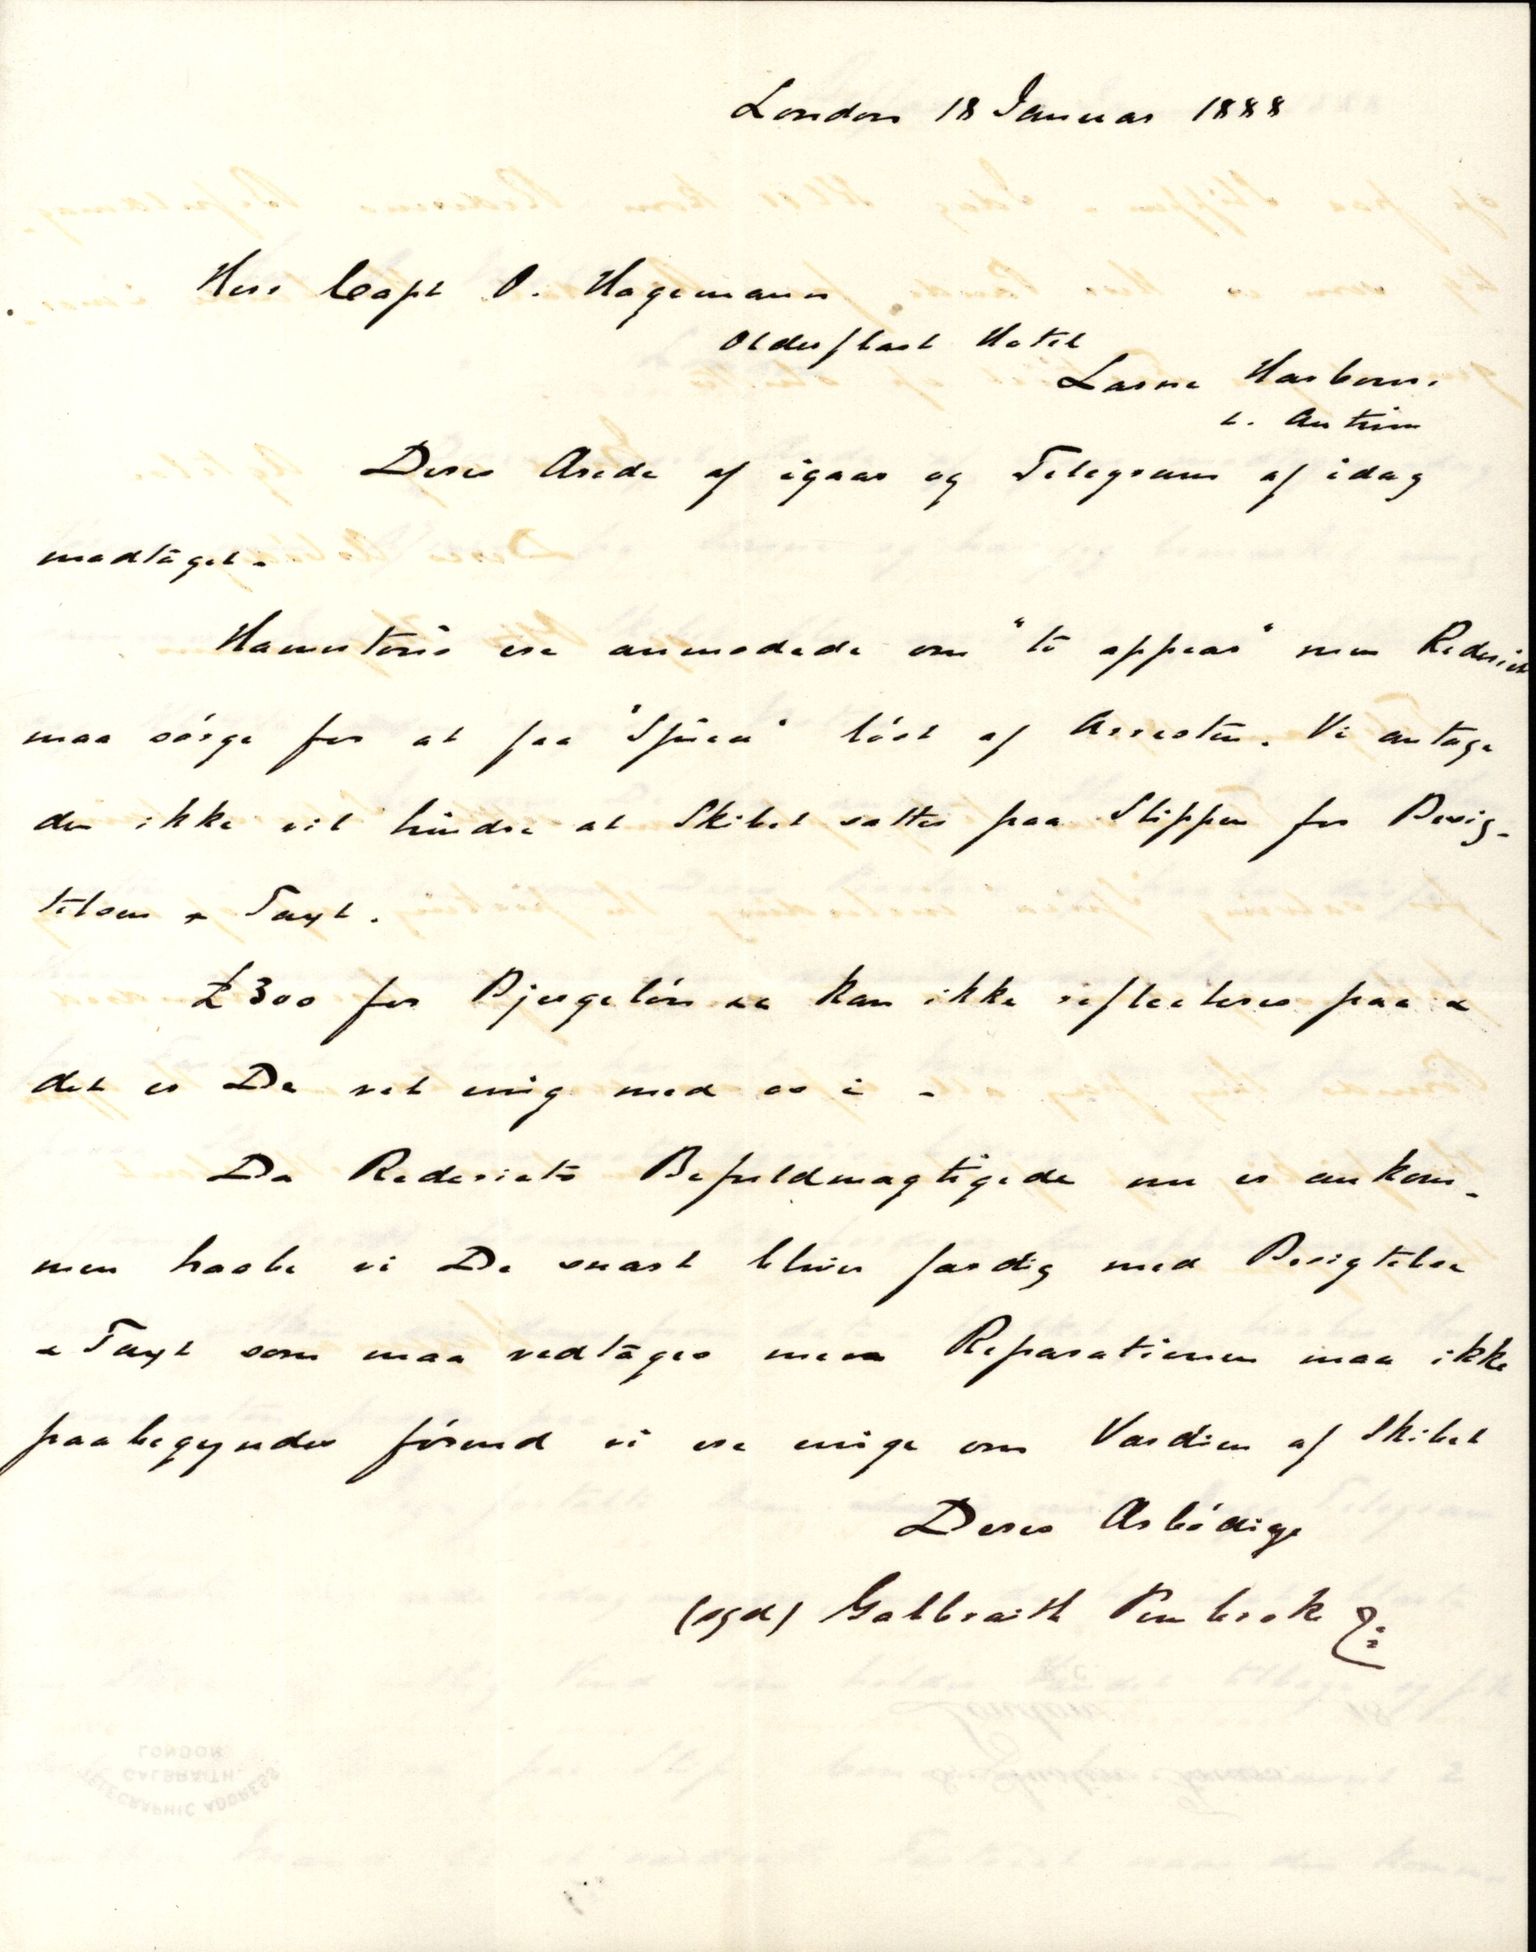 London 18 Januar 1888
Herr Capt O. Hagemann
Olderfleet Hotel
Larne Harbour.
C. Antrim
Deres Ærede af igaar og Telegram af idag
modtaget.
ere anmodede om "to appear" men Rederiet
maa sörge for at faa "Spica" löst af Arresten. Vi antage
den ikke vil hindre at Skibet sættes paa Slippen for Besig-
telsen & Taxt.
£300 for Bjergelön kan ikke reflecteres paa &
det er De vel enig med os i -
Da Rederiets Befuldmægtigede nu er ankom-
men haabe vi De snart bliver færdig med Besigtelse
& Taxt som maa vedtages men Reparationen maa ikke
paabegyndes förend vi ere enige om Værdien af Skibet
Deres Ærbödige
(sgd) Galbraith Pembroke
TELEGRAPHIC ADDRESS
GALBRAITH.
LONDON